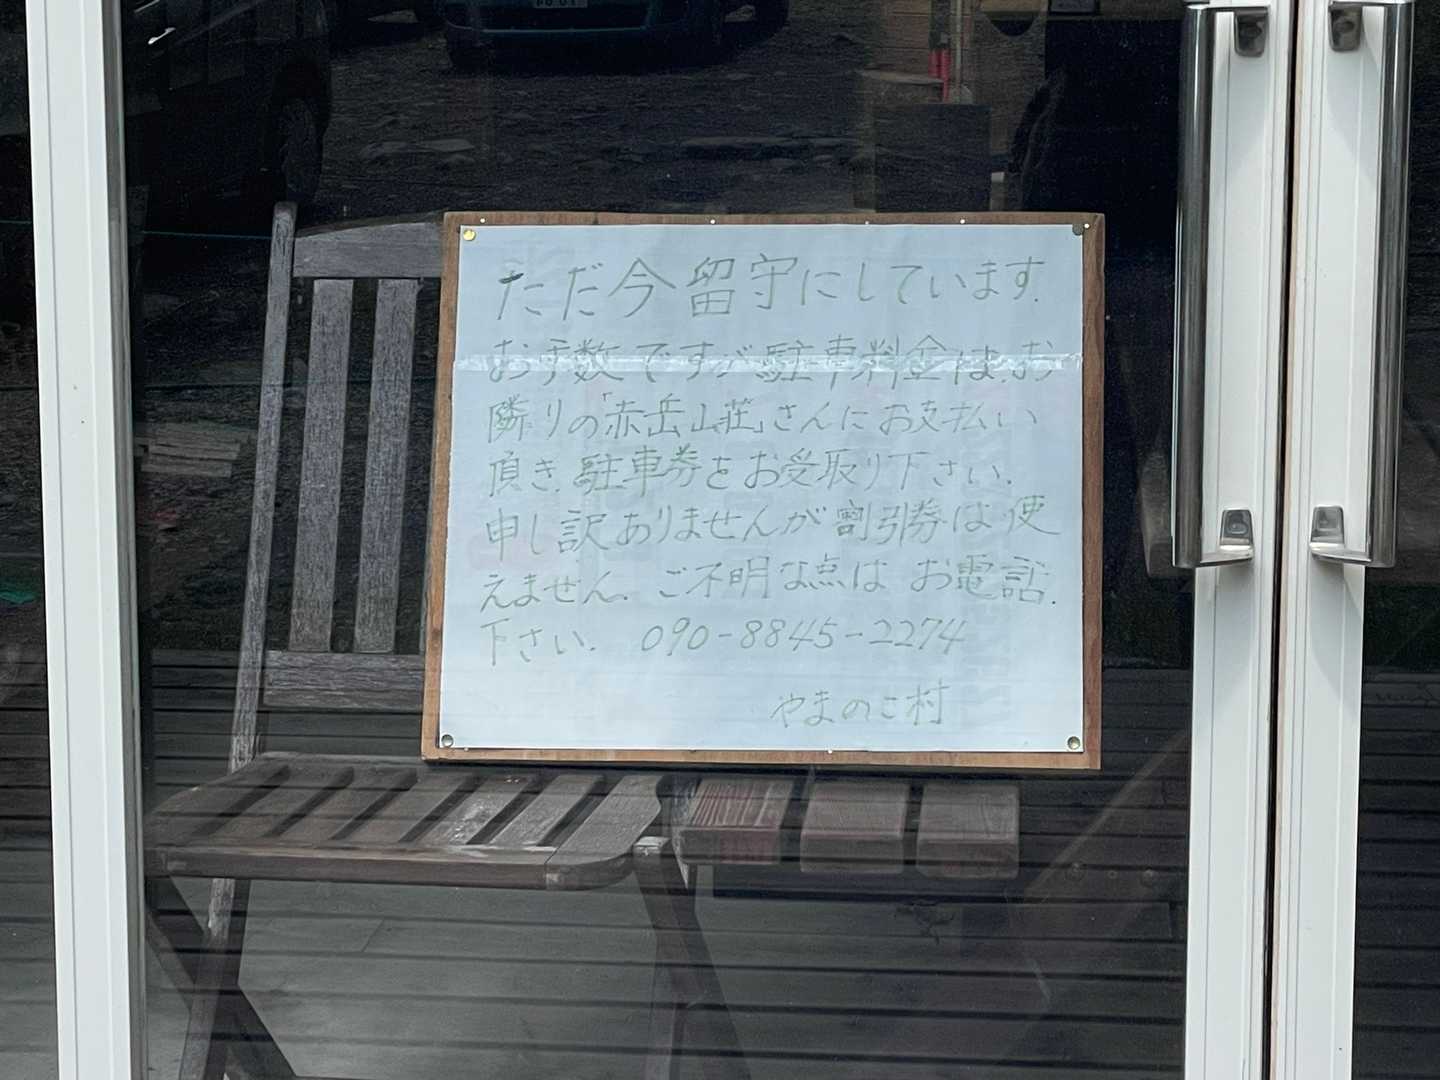 ただ今留守にしています.
お手数ですが駐車料金は、お
隣りの「赤岳山荘」さんにお支払い
頂き、駐車券をお受取り下さい.
申し訳ありませんが割引券は使
えません. ご不明な点は お電話.
下さい. 090-8845-2274
やまのこ村